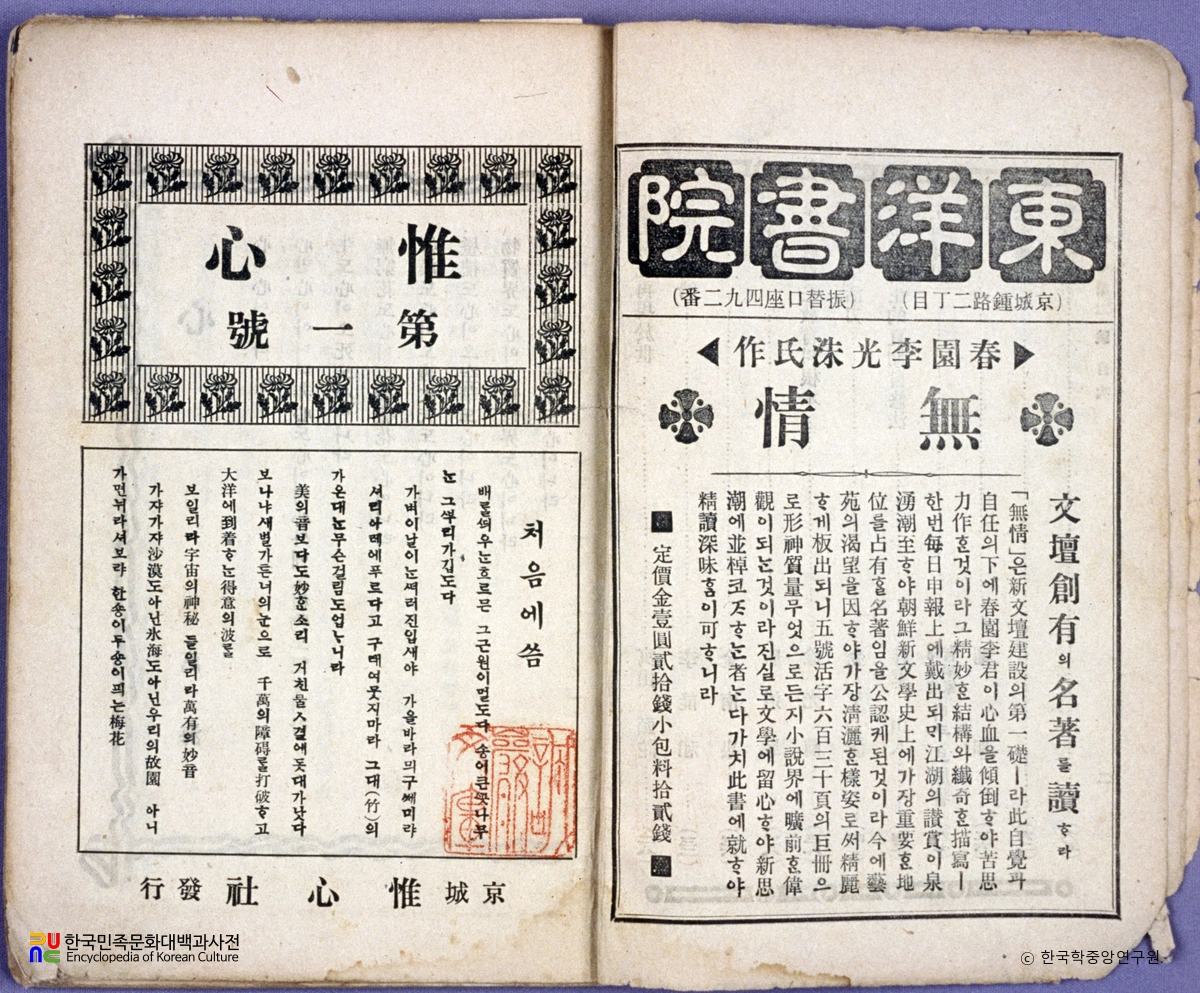 東洋書院
(京城鍾路二丁目) (振替口座四九二番)
春園李光洙氏作
無情
文壇創有의名著를讀ᄒᆞ라
「無情」은新文壇建設의第一礎ㅣ라此自覺과
自任의下에春園李君이心血을傾倒ᄒᆞ야苦思
力作ᄒᆞᆫ것이라그精妙ᄒᆞᆫ結構와纖奇ᄒᆞᆫ描寫ㅣ
한번每日申報上에戴出되ᄆᆡ江湖의讃賞이泉
湧潮至ᄒᆞ야朝鮮新文學史上에가장重要ᄒᆞᆫ地
位를占有ᄒᆞᆯ名著임을公認케된것이라今에藝
苑의渴望을因ᄒᆞ야가장淸灑ᄒᆞᆫ樣姿로써精麗
ᄒᆞ게板出되니五號活字六百三十頁의巨冊으
로形神質量무엇으로든지小說界에曠前ᄒᆞᆫ偉
觀이되ᄂᆞᆫ것이라진실로文學에留心ᄒᆞ야新思
潮에並棹코ᄌᆞᄒᆞᄂᆞᆫ者ᄂᆞᆫ다가치此書에就ᄒᆞ야
精讀深味ᄒᆞᆷ이可ᄒᆞ니라
定價金壹圓貳拾錢小包料拾貳錢
惟心
第一號
처음에씀
배를ᄯᅴ우ᄂᆞᆫ흐르믄 그근원이멀도다 송이큰ᄭᅩᆺ나무
ᄂᆞᆫ 그ᄲᅮ리가깁도다
가벼이날이ᄂᆞᆫᄯᅥ러진입새야 가을바라ᄆᆡ구쎄미랴
셔리아ᄅᆡ에푸르다고 구ᄐᆡ여뭇지마라 그대(竹)의
가온대ᄂᆞᆫ무슨걸림도업ᄂᆞ니라
美의音보다도妙ᄒᆞᆫ소리 거친물ㅅ결에돗대가낫다
보나냐새벌가튼너의눈으로 千萬의障碍를打破ᄒᆞ고
大洋에到着ᄒᆞᄂᆞᆫ得意의波를
보일리라宇宙의神秘 들일리라萬有의妙音
가쟈가쟈沙漠도아닌氷海도아닌우리의故園 아니
가면뉘라셔보랴 한송이두송이픠는梅花
京城 惟心社 發行
한국민족문화대백과사전
Encyclopedia of Korean Culture
© 한국학중앙연구원